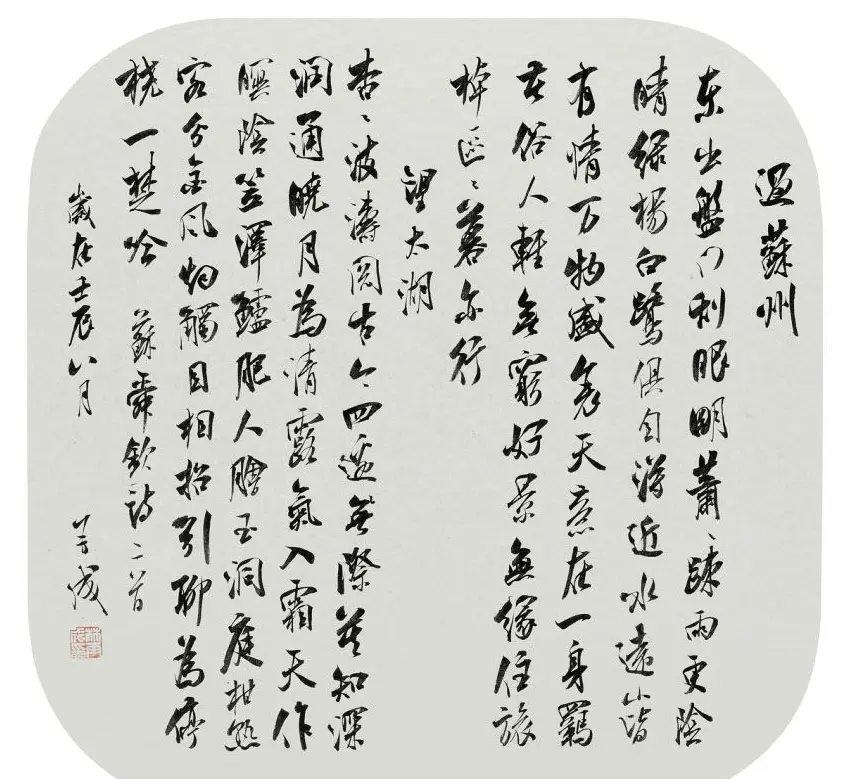 過蘇州
東出盤門刮眼明蕭〻疎雨更陰
晴綠楊白鷺俱自得近水遠山皆
有情万物盛衰天意在一身羈
苦俗人輕無窮好景無緣住旅
棹區〻暮亦行
望太湖
杳〻波濤閱古今四邊無際莫知深
潤通曉月為清露氣入霜天作
暝陰笠澤鱸肥人膾玉洞庭柑熟
客分金風烟觸目相招引聊為停
橈一楚吟 蘇舜欽詩二首
歲在壬辰八月 成